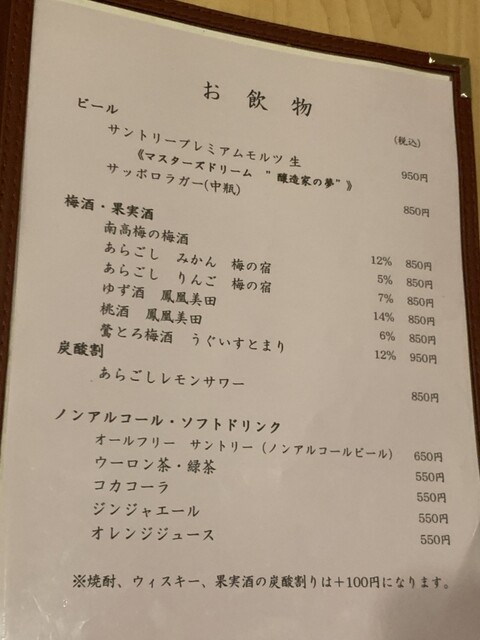 お飲物
ビール (税込)
サントリープレミアムモルツ 生
《マスターズドリーム "醸造家の夢"》 950円
サッポロラガー(中瓶) 850円
梅酒・果実酒
南高梅の梅酒 12% 850円
あらごし みかん 梅の宿 5% 850円
あらごし りんご 梅の宿 7% 850円
ゆず酒 鳳凰美田 14% 850円
桃酒 鳳凰美田 6% 850円
鶯とろ梅酒 うぐいすとまり 12% 950円
炭酸割
あらごしレモンサワー 850円
ノンアルコール・ソフトドリンク
オールフリー サントリー(ノンアルコールビール) 650円
ウーロン茶・緑茶 550円
コカコーラ 550円
ジンジャエール 550円
オレンジジュース 550円
※焼酎、ウィスキー、果実酒の炭酸割りは+100円になります。